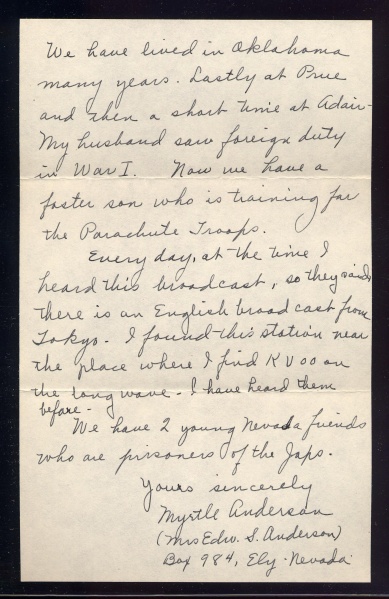 We have lived in Oklahoma
many years. Lastly at Prue
and then a short time at Adair-
My husband saw foreign duty
in War I. Now we have a
foster son who is training for
the Parachute Troops.
Every day, at the time I
heard this broadcast, so they said,
there is an English broadcast from
Tokyo. I found this station near
the place where I find KVOO on
the long wave. I have heard them
before-
We have 2 young Nevada friends
who are prisoners of the Japs.
Yours sincerely
Myrtle Anderson
(Mrs Edw. S. Anderson)
Box 984, Ely-Nevada